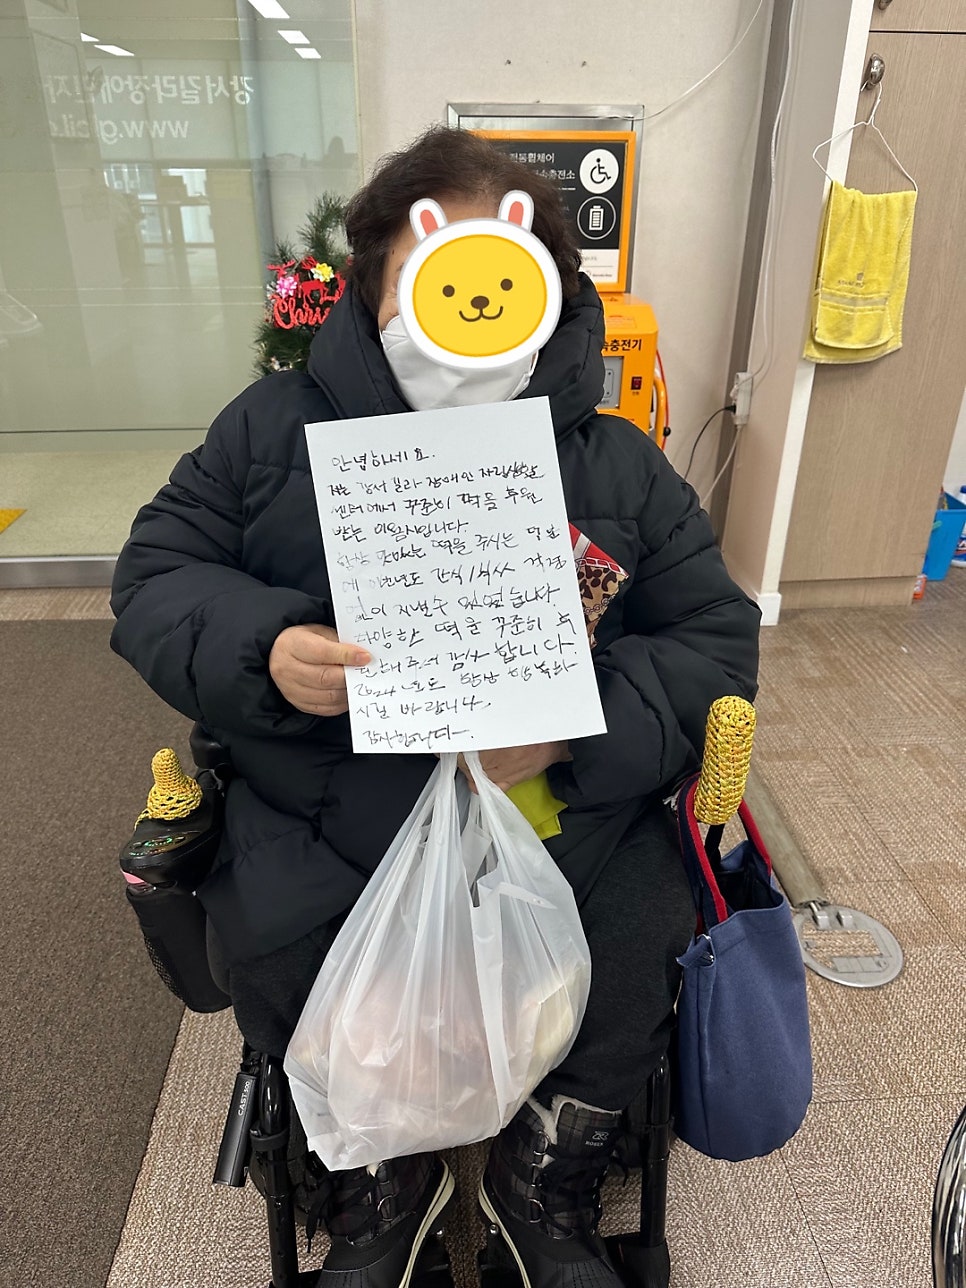 강서길라장애인자
www.g
cil.o
전동휠체어
속충전소
Chris
속충전기
안녕하세요.
저는 강서 길라 장애인 자립생활
센터에서 꾸준히 떡을 후원
받는 입니다.
항상 맛있는 떡을 주시는 덕분
에 올년도 간식/식사 걱정
없이 지낼수 있었습니다.
다양한 떡을 꾸준히 후
원해주셔 감사합니다.
2024년도 항상 행복하
시길 바랍니다.
감사합니다.
CAST 500